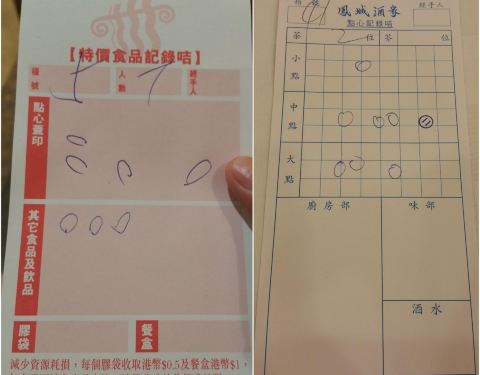 【特價食品記錄咭】
檯號
5
人數
1
經手人
點心蓋印
其它食品及飲品
膠袋
餐盒
減少資源耗損，每個膠袋收取港幣$0.5及餐盒港幣$1，
鳳城酒家
經手人
點心記錄咭
茶 2 位 芥 位
小點
中點
大點
廚房部
味部
酒水